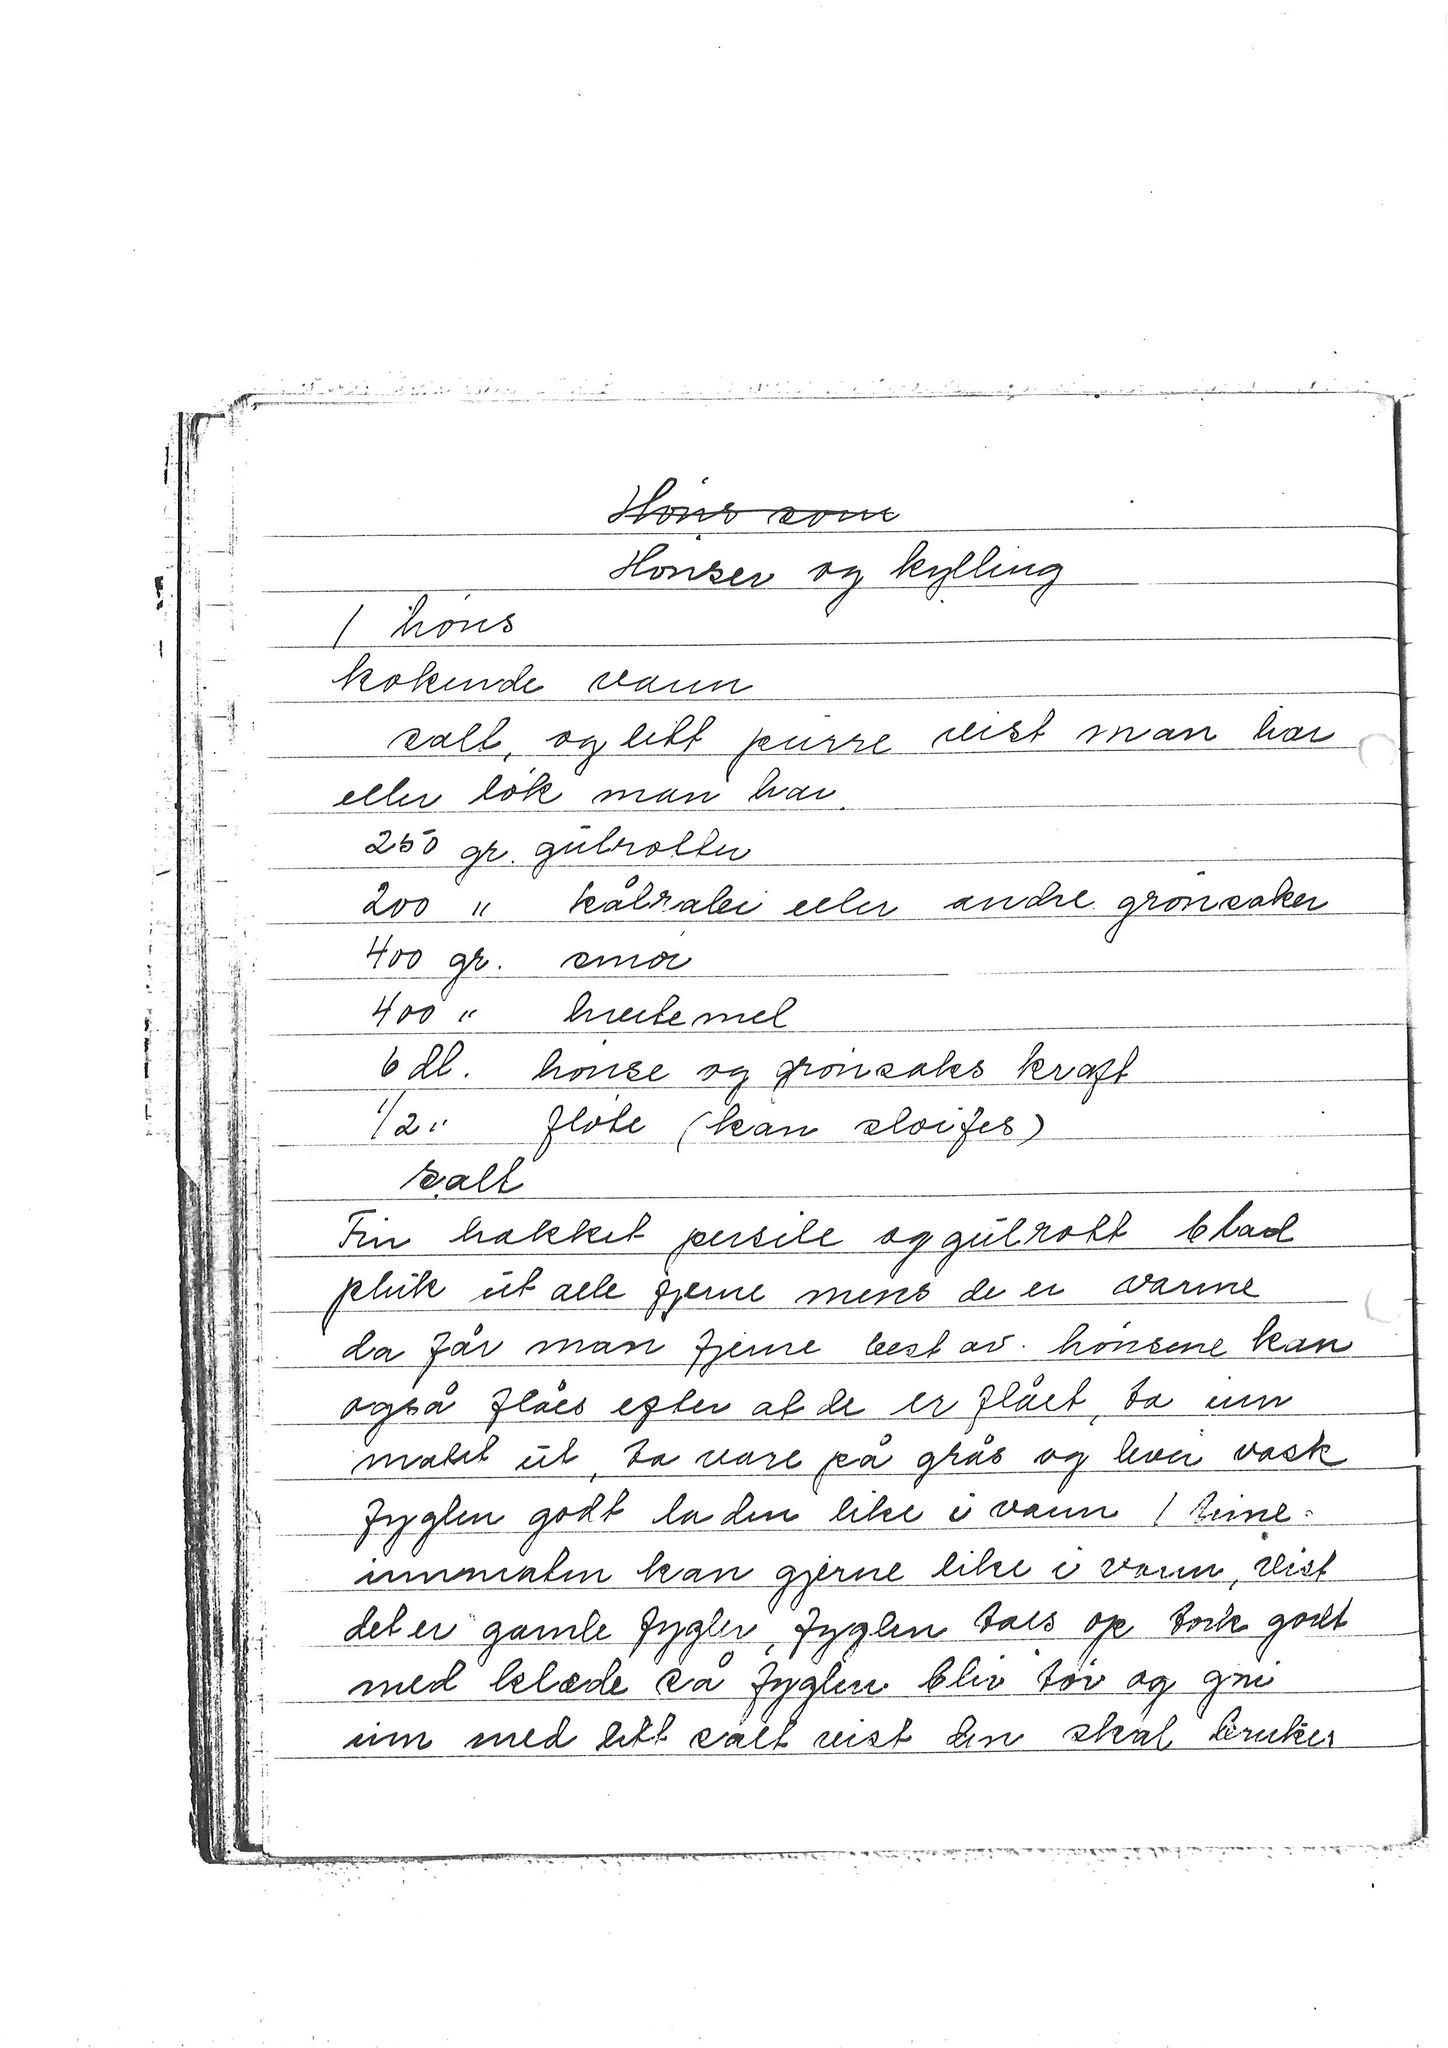 Höns som
Hönser og kylling
1 höns
kokende vann
salt, og litt purre vist man har
eller lök man har.
250 gr. gulrotter
200 " kålrabi eller andre grönsaker
400 gr. smör
400 " hvetemel
6 dl. hönse og grönsaks kraft
1/2 " flöte (kan slöifes)
salt
Fin hakket persile og gulrott blad
pluk ut alle fjerne mens de er varme
da får man fjerne best av. hönsene kan
også flåes efter at de er flået, ta inn
matet ut, ta vare på krås og lever vask
fyglen godt la den like i vann 1 time.
innmaten kan gjerne like i vann, vist
det er gamle fygler, fyglen taes op törk godt
med klæde så fyglen bliv tör og gni
inn med litt salt vist den skal brukes